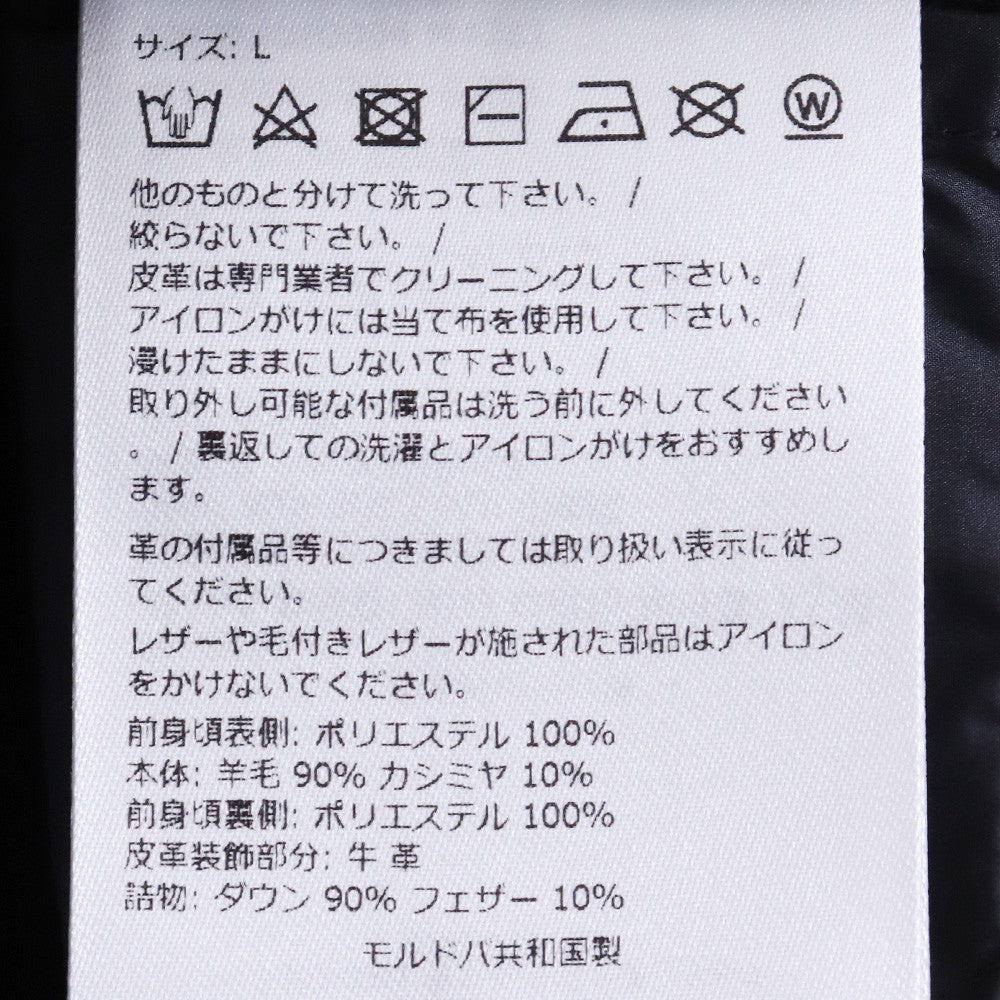 サイズ: L
W
他のものと分けて洗って下さい。 /
絞らないで下さい。 /
皮革は専門業者でクリーニングして下さい。 /
アイロンがけには当て布を使用して下さい。 /
浸けたままにしないで下さい。 /
取り外し可能な付属品は洗う前に外してください
。 / 裏返しての洗濯とアイロンがけをおすすめし
ます。
革の付属品等につきましては取り扱い表示に従っ
てください。
レザーや毛付きレザーが施された部品はアイロン
をかけないでください。
前身頃表側: ポリエステル 100%
本体: 羊毛 90% カシミヤ 10%
前身頃裏側: ポリエステル 100%
皮革装飾部分: 牛 革
詰物: ダウン 90% フェザー 10%
モルドバ共和国製